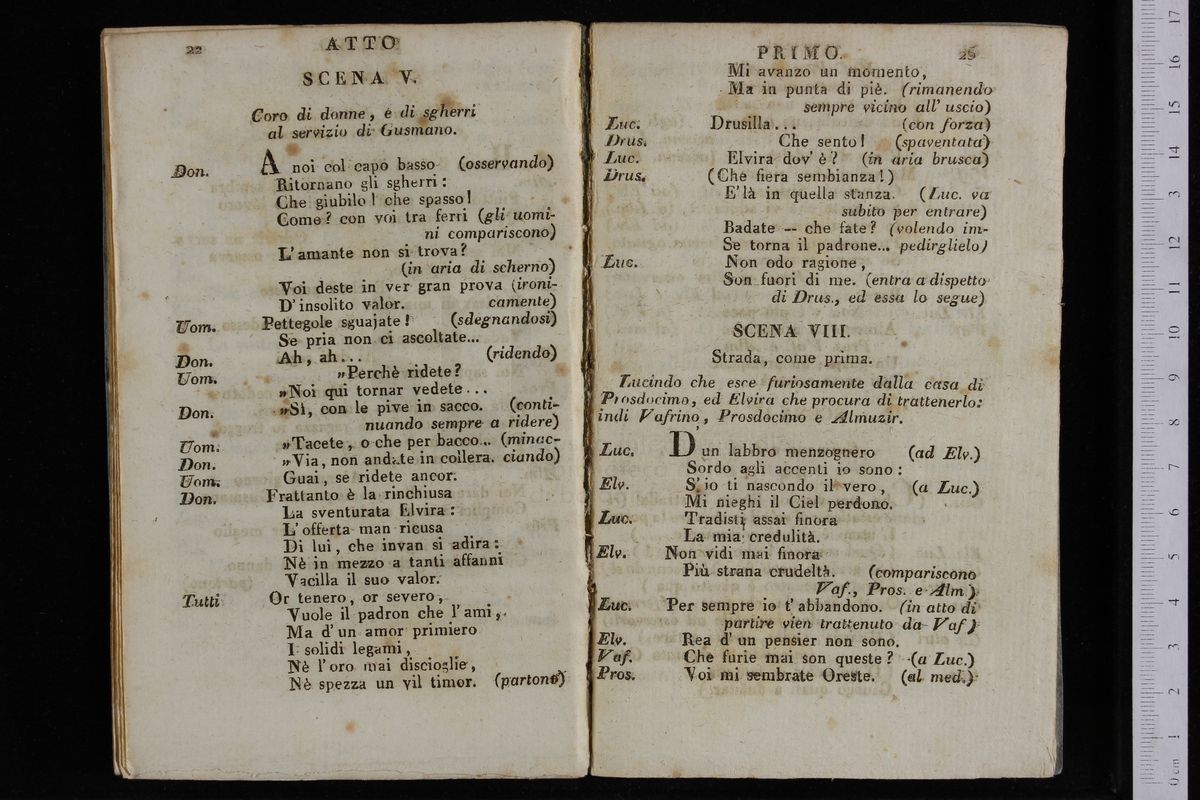 22 ATTO
SCENA V.
Coro di donne, e di sgherri
al servizio di Gusmano.
Don. A noi col capo basso (osservando)
Ritornano gli sgherri:
Che giubilo! che spasso!
Come? con voi tra ferri (gli uomi-
ni compariscono)
L'amante non si trova?
(in aria di scherno)
Voi deste in ver gran prova (ironi-
D'insolito valor. camente)
Uom. Pettegole sguajate! (sdegnandosi)
Se pria non ci ascoltate...
Don. Ah, ah... (ridendo)
Uom. „Perchè ridete?
„Noi qui tornar vedete...
Don. „Sì, con le pive in sacco. (conti-
nuando sempre a ridere)
Uom. „Tacete, o che per bacco... (minac-
Don. „Via, non andate in collera. ciando)
Uom. Guai, se ridete ancor.
Don. Frattanto è la rinchiusa
La sventurata Elvira:
L'offerta man ricusa
Di lui, che invan si adira:
Nè in mezzo a tanti affanni
Vacilla il suo valor.
Tutti Or tenero, or severo,
Vuole il padron che l'ami,
Ma d'un amor primiero
I solidi legami,
Nè l'oro mai discioglie,
Nè spezza un vil timor. (partono)
PRIMO. 25
Mi avanzo un momento,
Ma in punta di piè. (rimanendo
sempre vicino all' uscio)
Luc. Drusilla... (con forza)
Drus. Che sento! (spaventata)
Luc. Elvira dov'è? (in aria brusca)
Drus. (Che fiera sembianza!)
E'là in quella stanza. (Luc. va
subito per entrare)
Badate -- che fate? (volendo im-
Se torna il padrone... pedirglielo)
Luc. Non odo ragione,
Son fuori di me. (entra a dispetto
di Drus., ed essa lo segue)
SCENA VIII.
Strada, come prima.
Lucindo che esce furiosamente dalla casa di
Prosdocimo, ed Elvira che procura di trattenerlo:
indi Vafrino, Prosdocimo e Almuzir.
Luc. D'un labbro menzognero (ad Elv.)
Sordo agli accenti io sono:
Elv. S'io ti nascondo il vero, (a Luc.)
Mi nieghi il Ciel perdono.
Luc. Tradisti assai finora
La mia credulità.
Elv. Non vidi mai finora
Più strana crudeltà. (compariscono
Vaf., Pros. e Alm.)
Luc. Per sempre io t'abbandono. (in atto di
partire vien trattenuto da Vaf)
Elv. Rea d'un pensier non sono.
Vaf. Che furie mai son queste? (a Luc.)
Pros. Voi mi sembrate Oreste. (al med.)
0 cm 1 2 3 4 5 6 7 8 9 10 11 12 13 14 15 16 17